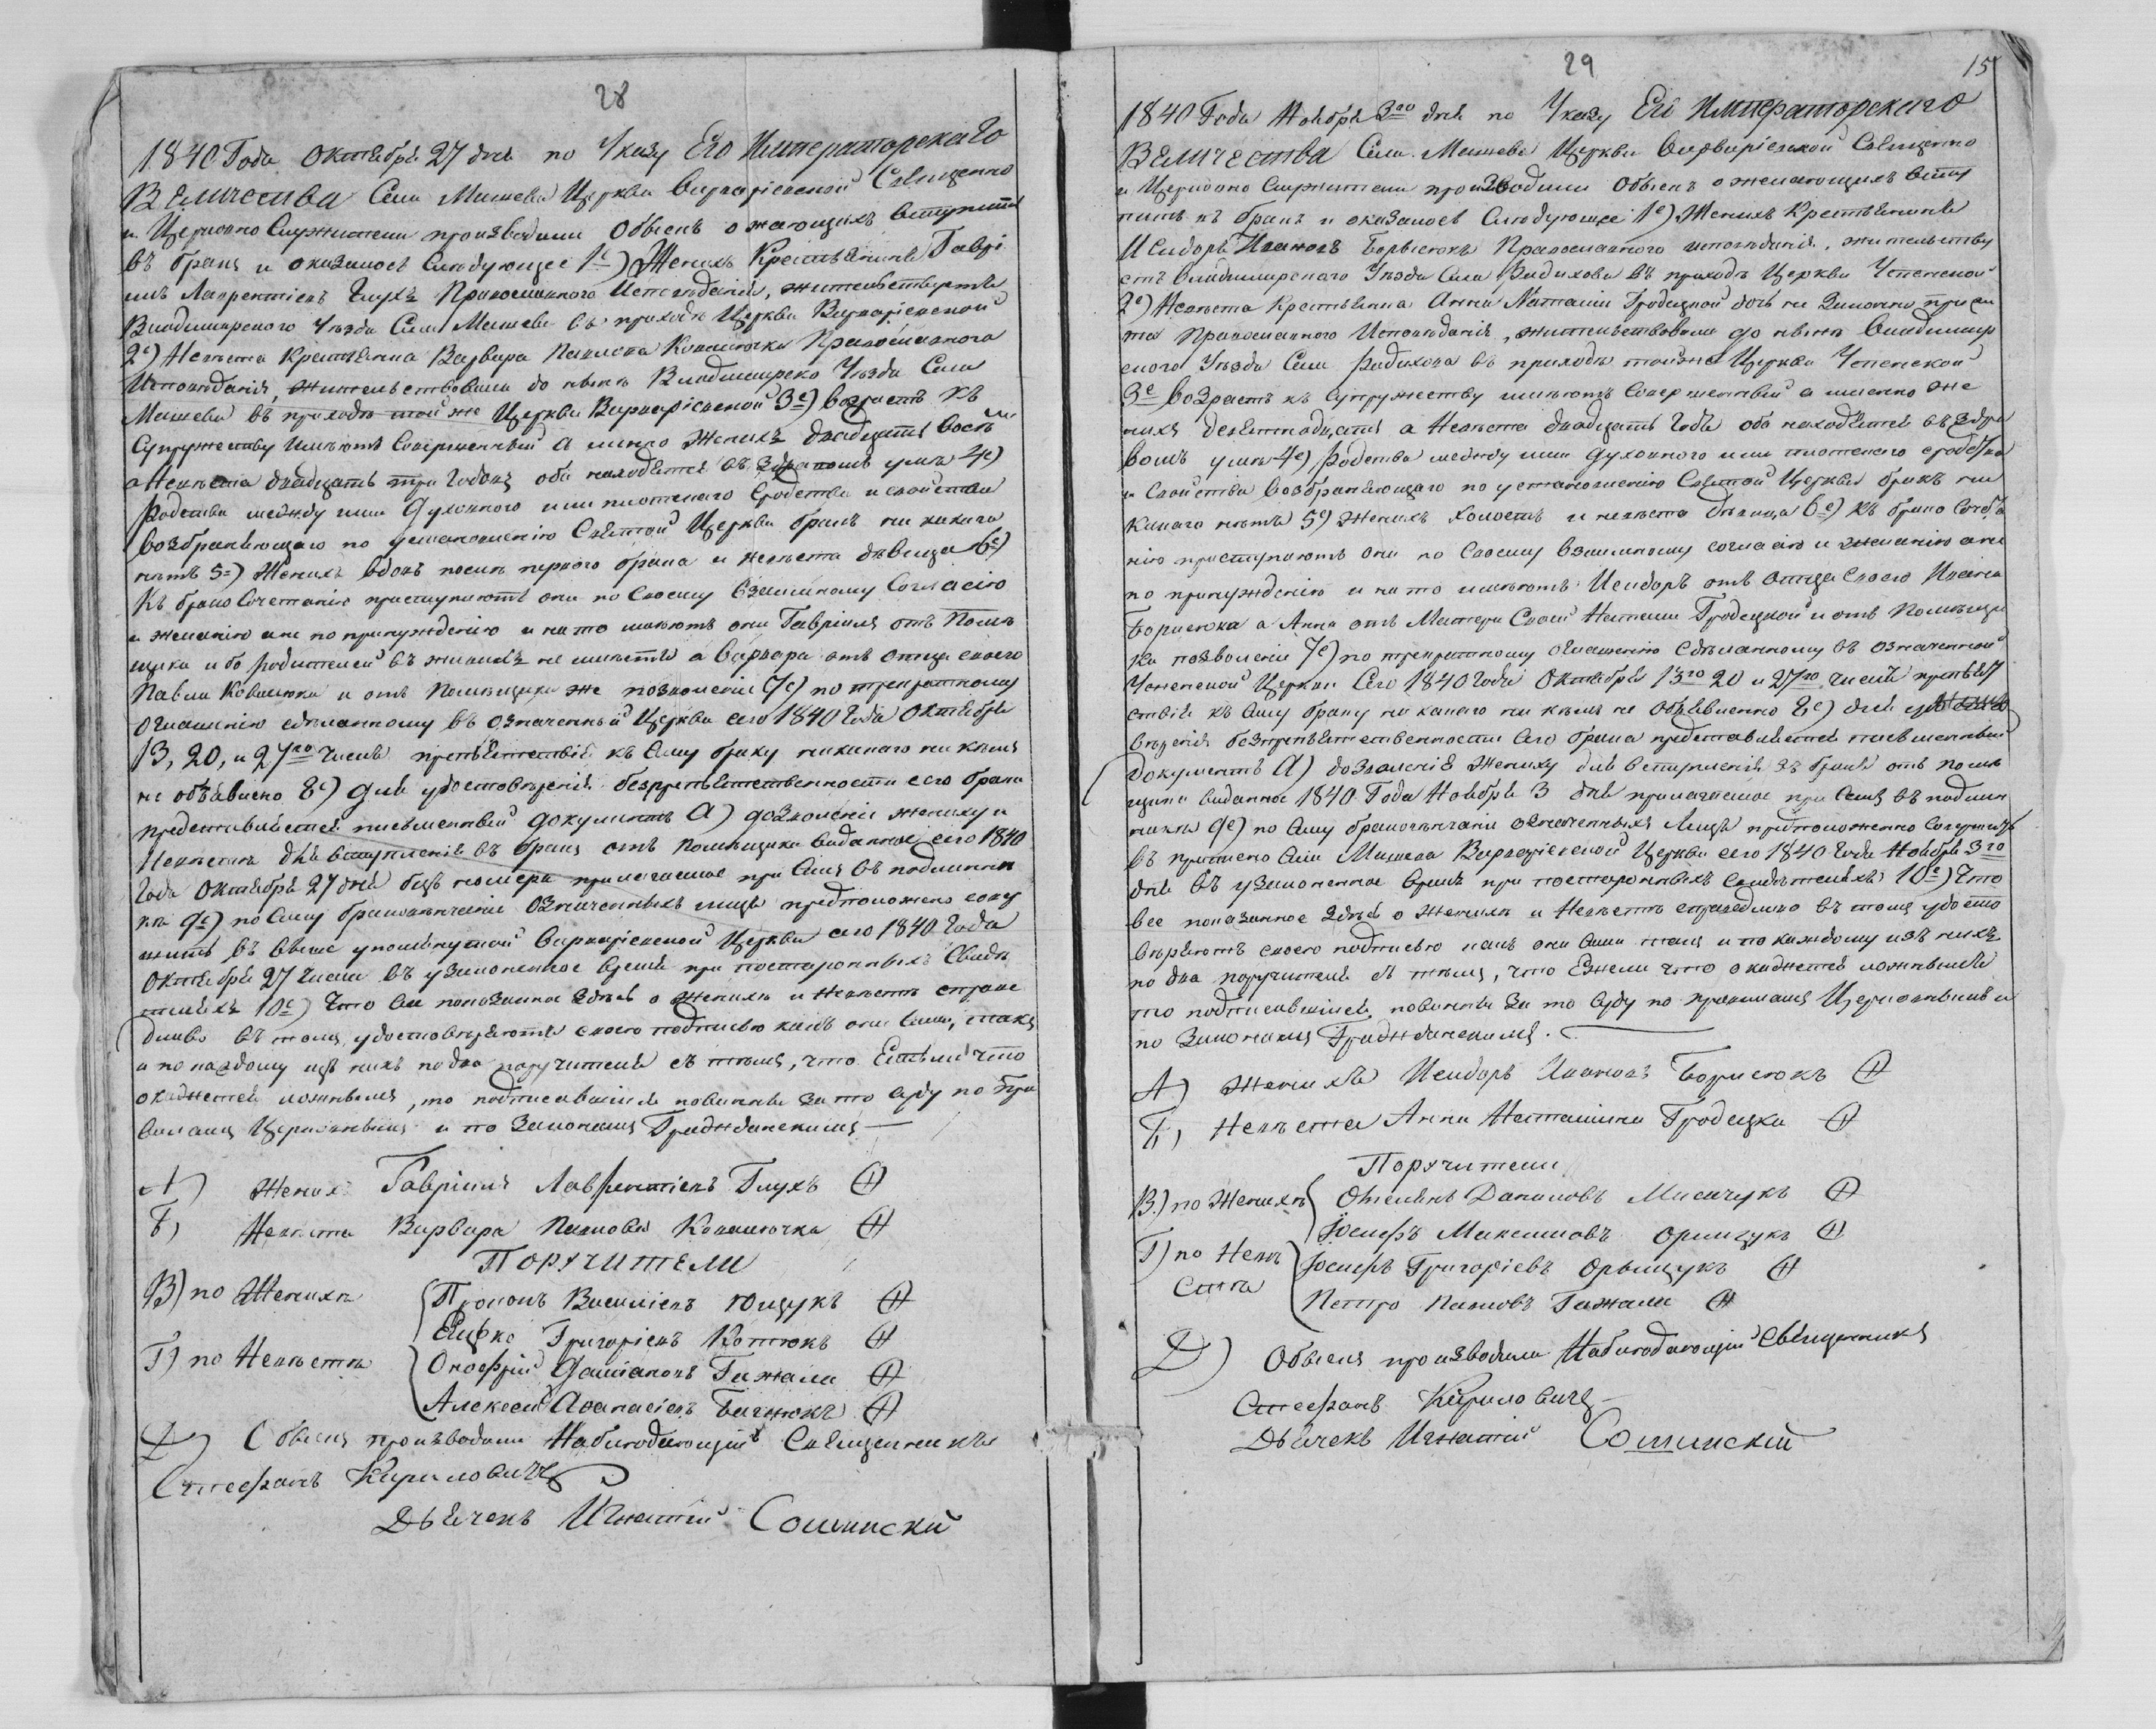 28
1840 Года Октября 27 дня по Указу Его Императорскаго
Величества Села Мышева Церкви Варваріевской Священно
и Церковно Служители производили Обыскъ о желающихъ вступить
въ бракъ и оказалось Слѣдующее 1е) Женихъ Крестьянинъ Гаврі
илъ Лаврентіевъ Глухъ Православного Исповѣданія, жительствуетъ
Владимирского Уѣзда Села Мышева въ приходѣ Церкви Варваріевской
2е) Невѣста Крестьянка Варвара Павлова Ковалючка Православного
Исповѣданія, жительствовала до нынѣ Владимирско Уѣзда Села
Мышева въ приходѣ той же Церкви Варваріевской 3е) возрастъ къ
Супружеству имѣютъ Совершенный а имѣнно Женихъ двадцать восемь
а Невѣста двадцать три Годовъ оба находятся въ здравомъ умѣ 4е)
Родства между ими Духовного или плотского Сродства и свойства
возбраняющаго по установленію Святой Церкви бракъ ни какаго
нѣтъ 5е) Женихъ вдовъ послѣ перваго брака и невѣста дѣвица 6е)
Къ брако Сочетанію приступаютъ они по Своему взаимному Согласію
и желанію а не по принужденію и на то имѣютъ они Гавріилъ отъ Помѣ
щика ибо Родителей въ живыхъ не имѣетъ а Варвара отъ отца своего
Павла Ковалюка и отъ Помѣщика же позволеніе 7е) по трекратному
оглашенію сдѣланному въ означенной Церкви сего 1840 Года Октября
13, 20, и 27го числъ препятствія къ Сему браку никакого никѣмъ
не объявлено 8е) Для удостовѣренія безпрепятственности сего брака
предъставляется письменный документъ А) дозволеніе жениху и
Невѣстѣ для вступленія въ бракъ отъ помѣщика выданное сего 1840
Года Октября 27 дня безъ номера прилагаемое при Семъ въ подлинни
кѣ 9е) по Сему бракосочетаніе Означенныхъ лицъ предположено совер
шить въ выше упомянутой Варваріевской Церкви сего 1840 Года
Октября 27 числа въ узаконенное время при постороннихъ Свидѣ
теляхъ 10е) Что все показанное здѣсь о Женихѣ и Невѣстѣ справе
дливо въ томъ удостовѣряютъ своею подписью какъ они Сами, такъ
и по каждому изъ нихъ по два поручителя съ тѣмъ, что Естьли что
окажется ложнымъ, то подписавшіися повинны за то Суду по Пра
виламъ Церковнымъ и по Законамъ Гражданскимъ
А) Женихъ Гавріилъ Лаврентіевъ Глухъ
Б) Невѣста Варвара Павлова Ковалючка
Поручители
В) по Женихѣ Прокопъ Василіевъ Ющукъ
Яцько Григоріевъ Котюкъ
Г) по Невѣстѣ Онофрій Даміановъ Гажала
Алексей Афанасіевъ Бачнюкъ
Д) Обыскъ производили Наблюдающій Священникъ
Стефанъ Кириловичъ
Дьячекъ Игнатій Сошинскій
29
15
1840 Года Ноября 3го дня по Указу Его Императорскаго
Величества Села Мышева Церкви Варваріевской Священно
и Церковно Служители производили Обыскъ о желающихъ всту
пить въ бракъ и оказалось Слѣдующее 1е) Женихъ Крестьянинъ
Исидоръ Ивановъ Борысюкъ Православного исповѣданія, жительству
етъ Владимирского Уѣзда Села Радихова въ приходѣ Церкви Успенской
2е) Невѣста Крестьянка Анна Наталіи Гродецкой дочь
Православного Исповѣданія, жительствовала до нынѣ Владимир
ского Уѣзда Села Радихова въ приходѣ той же Церкви Успенской
3е возрастъ къ Супружеству имѣютъ Совершенный а именно же
нихъ девятнадцать а Невѣста двадцать Годъ оба находятся въ здра
вомъ умѣ 4е) Родства между ими Духовного или плотского сродства
и Свойства возбраняющаго по установленію Святой Церкви бракъ ни
какаго нѣтъ 5е) Женихъ холостъ и невѣста дѣвица 6е) Къ брако Сочета
нію приступаютъ они по Своему взаимному согласію и желанію а не
по принужденію и на то имѣютъ Исидоръ отъ Отца Своего Ивана
Борисюка а Анна отъ Матери Своей Наталіи Гродецкой и отъ Помѣщи
ка позволеніе 7е) по трекратному оглашенію сдѣланному въ означенной
Успенской Церкви Сего 1840 Года Октября 13го 20 и 27го числъ препят
ствія къ Сему браку ни какаго ни кѣмъ не Объявленно 8е) Для удосто
вѣренія безпрепятственности Сего брака представляется письменный
Документъ А) дозволеніе Жениху для вступленія въ бракъ отъ помѣ
щика выданное 1840 Года Ноября 3 дня прилагаемое при Семъ въ подлин
никѣ 9е) по Сему бракосочетаніе означенныхъ Лицъ предположенно Совершить
въ Села Мышева Варваріевской Церкви сего 1840 Года Ноября 3го
дня въ узаконенное время при постороннихъ Свидѣтеляхъ 10е) Что
все показанное здѣсь о Женихѣ и Невѣстѣ справедливо въ томъ удосто
вѣряютъ своею подписью какъ они Сами такъ и по каждому изъ нихъ
по два поручителя съ тѣмъ, что Ежели что окажется ложнымъ
то подписавшіися повинны за то Суду по правиламъ Церковнымъ и
по Законамъ Гражданскимъ.
А) Женихъ Исидоръ Ивановъ Борисюкъ
Б) Невѣста Анна Наталіина Гродецка
Поручители
В) по Женихѣ Омелянъ Даниловъ Мисачукъ
Іосифъ Максимовъ Орищукъ
Г) по Невѣ Іосифъ Григоріевъ Орыщукъ
стѣ Петро Павловъ Гажала
Д) Обыскъ производили Наблюдающій Священникъ
Стефанъ Кириловичъ
Дьячекъ Игнатій Сошинскій